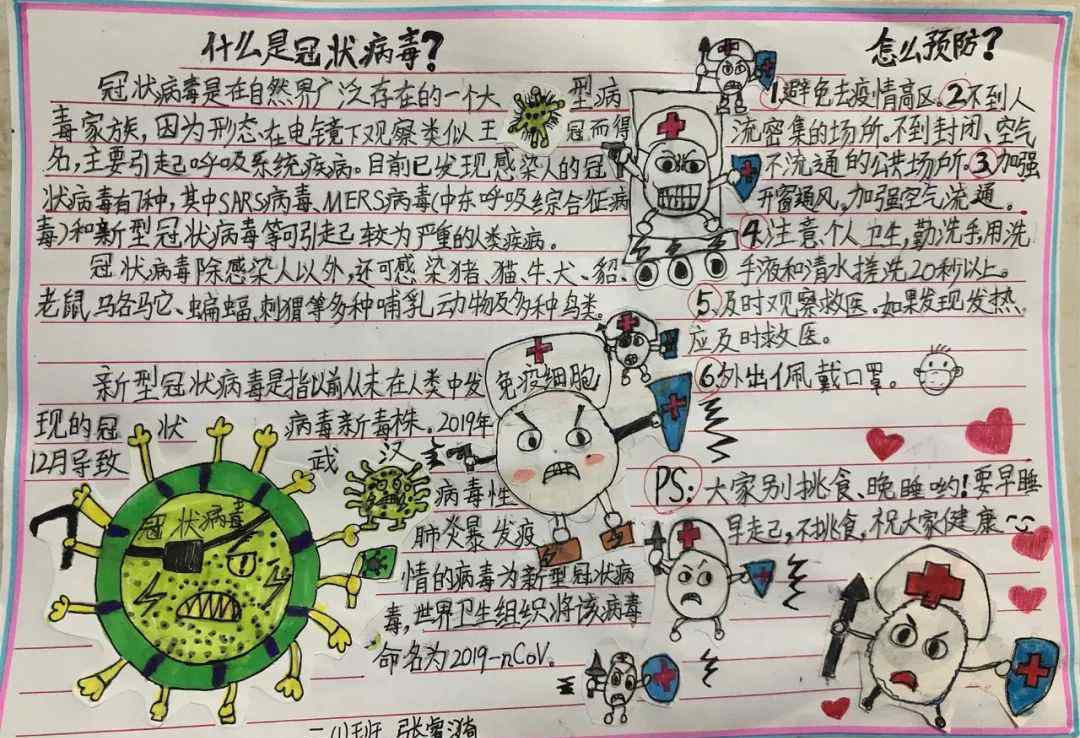 什么是冠状病毒？
冠状病毒是在自然界广泛存在的一个大型病
毒家族，因为形态在电镜下观察类似王冠而得
名，主要引起呼吸系统疾病。目前已发现感染人的冠
状病毒有7种，其中SARS病毒、MERS病毒(中东呼吸综合征病
毒)和新型冠状病毒等可引走己较为严重的人类疾病。
冠状病毒除感染人以外，还可感染猪、猫、牛、犬、貂、
老鼠、骆驼、蝙蝠、刺猬等多种哺乳动物及多种鸟类。
新型冠状病毒是指以前从未在人类中发
现的冠状病毒新毒株。2019年
12月导致武汉
病毒性
肺炎暴发疫
情的病毒为新型冠状病
毒，世界卫生组织将该病毒
命名为2019-nCoV。
冠状病毒
免疫细胞
怎么预防？
1.避免去疫情高区。2.不到人
流密集的场所。不到封闭、空气
不流通的公共场所。3.加强
开窗通风，加强空气流通。
4.注意个人卫生，勤洗手，用洗
手液和清水搓洗20秒以上。
5.及时观察救医。如果发现发热
应及时救医。
6.外出佩戴口罩。
PS：大家别挑食、晚睡哟！要早睡
早走己，不挑食，祝大家健康
二(1)班 张